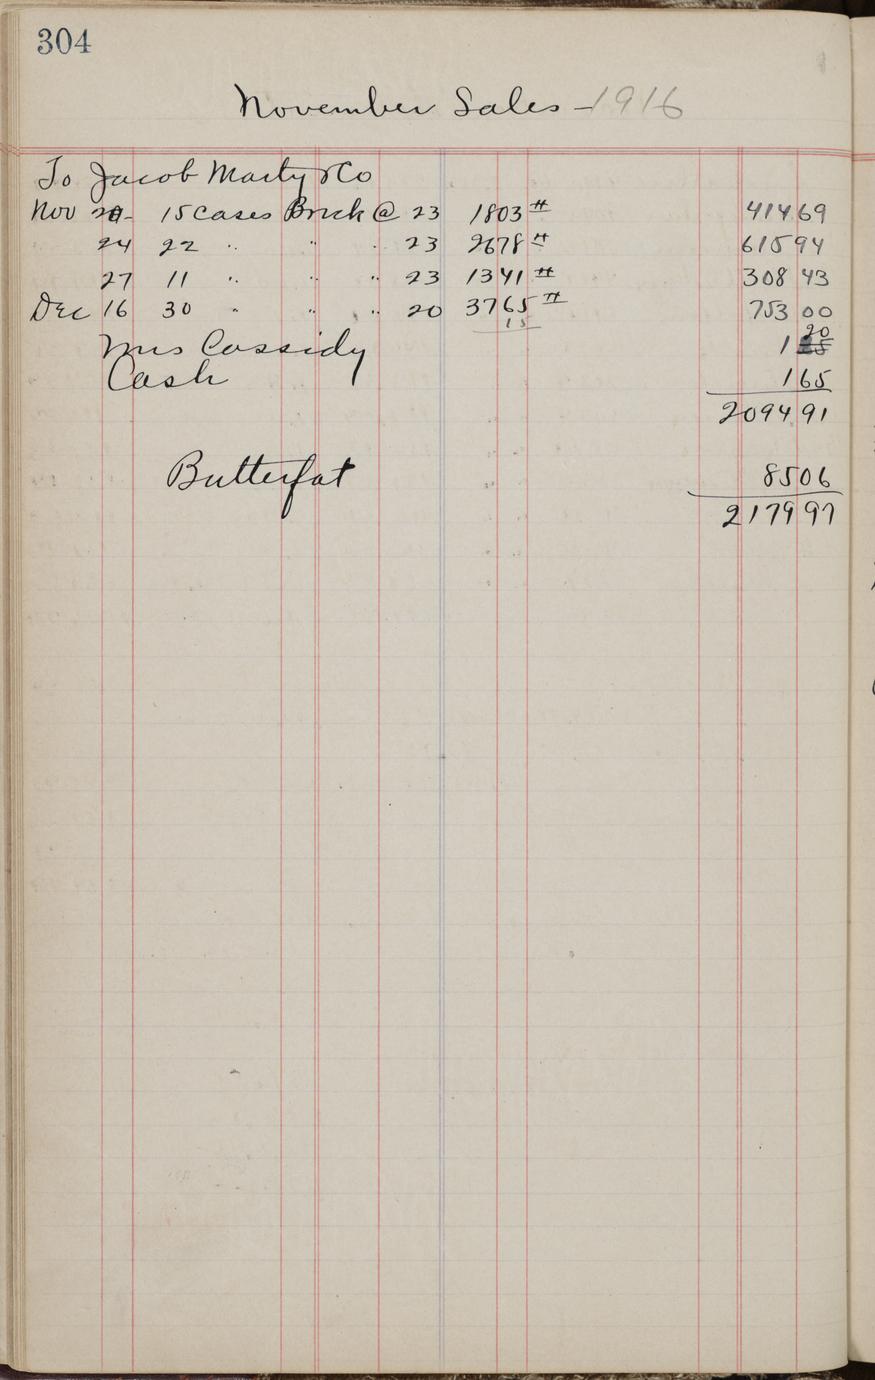 304
November Sales - 1916
To Jacob Marty & Co
Nov 20 - 15 cases Brick @ 23 1803 # 414 69
24 22 " " " 23 2678 # 615 94
27 11 " " " 23 1341 # 308 43
Dec 16 30 " " " 20 3765 # 753 00
15
Mrs Cassidy 1 20
Cash 1 65
2094 91
Butterfat 85 06
2179 97